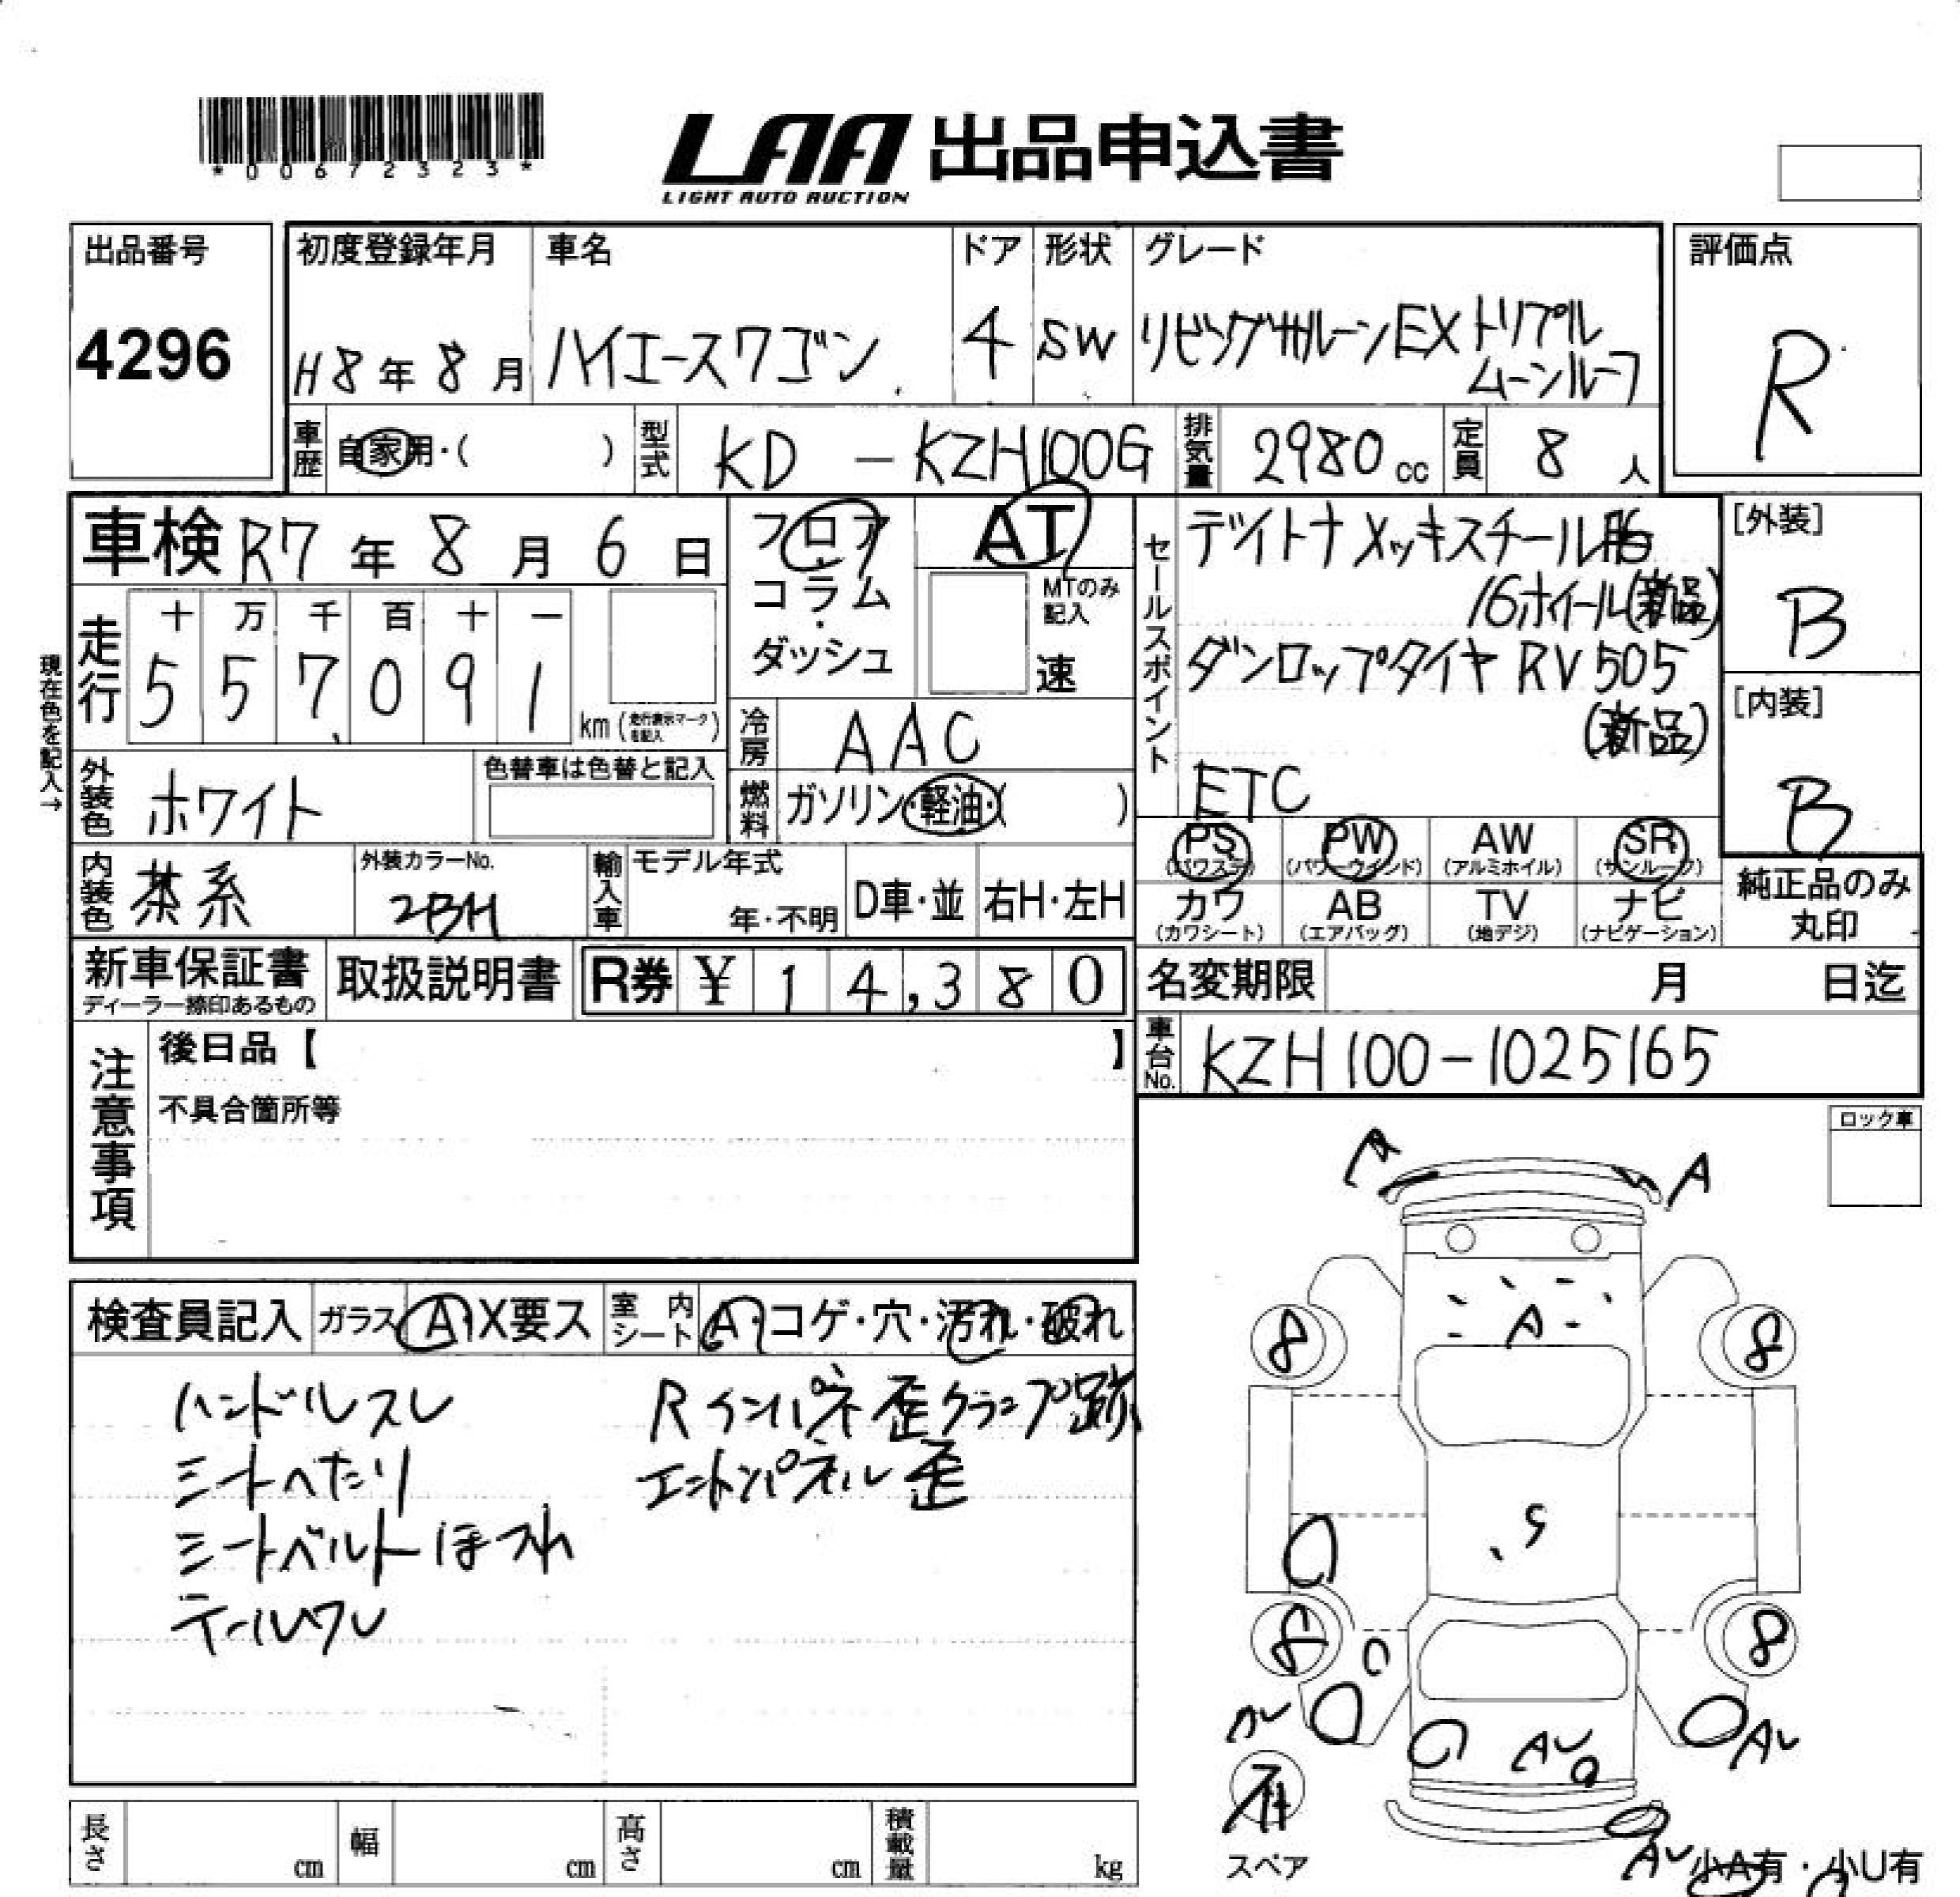 *00672323*
LAA 出品申込書
LIGHT AUTO AUCTION
出品番号
4296
初度登録年月
H8年8月
車名
ハイエースワゴン
ドア
4
形状
SW
グレード
リビングサルーンEX トリプル
ムーンルーフ
評価点
R
車歴 自家用・( )
型式 KD-KZH100G
排気量 2980cc
定員 8人
車検 R7年8月6日
フロア・コラム・ダッシュ
AT
MTのみ記入
速
現在色を記入→
走行
十 万 千 百 十 一
5 5 7 0 9 1
km (走行表示マークを記入)
冷房 AAC
燃料 ガソリン・軽油・( )
外装色 ホワイト
色替車は色替と記入
内装色 茶系
外装カラーNo.
2BH
輸入車 モデル年式
年・不明
D車・並
右H・左H
セールスポイント
デイトナメッキスチール
16ホイール(新品)
ダンロップタイヤ RV505
(新品)
ETC
[外装]
B
[内装]
B
PS (パワステ) PW (パワーウインド) AW (アルミホイル) SR (サンルーフ)
カワ (カワシート) AB (エアバッグ) TV (地デジ) ナビ (ナビゲーション)
純正品のみ
丸印
新車保証書
ディーラー捺印あるもの
取扱説明書
R券 ¥14,380
名変期限 月 日迄
車台No. KZH100-1025165
注意事項
後日品【 】
不具合箇所等
ロック車
検査員記入 ガラス A・X要ス 室内シート A・コゲ・穴・汚れ・破れ
ハンドルスレ
シートへたり
シートベルトほつれ
テールワレ
Rインパネ歪クランプ跡
エンドパネル歪
A
A
A
8
8
S
8
8
AU
AU
スペア
AU
小A有・小U有
長さ cm
幅 cm
高さ cm
積載量 kg